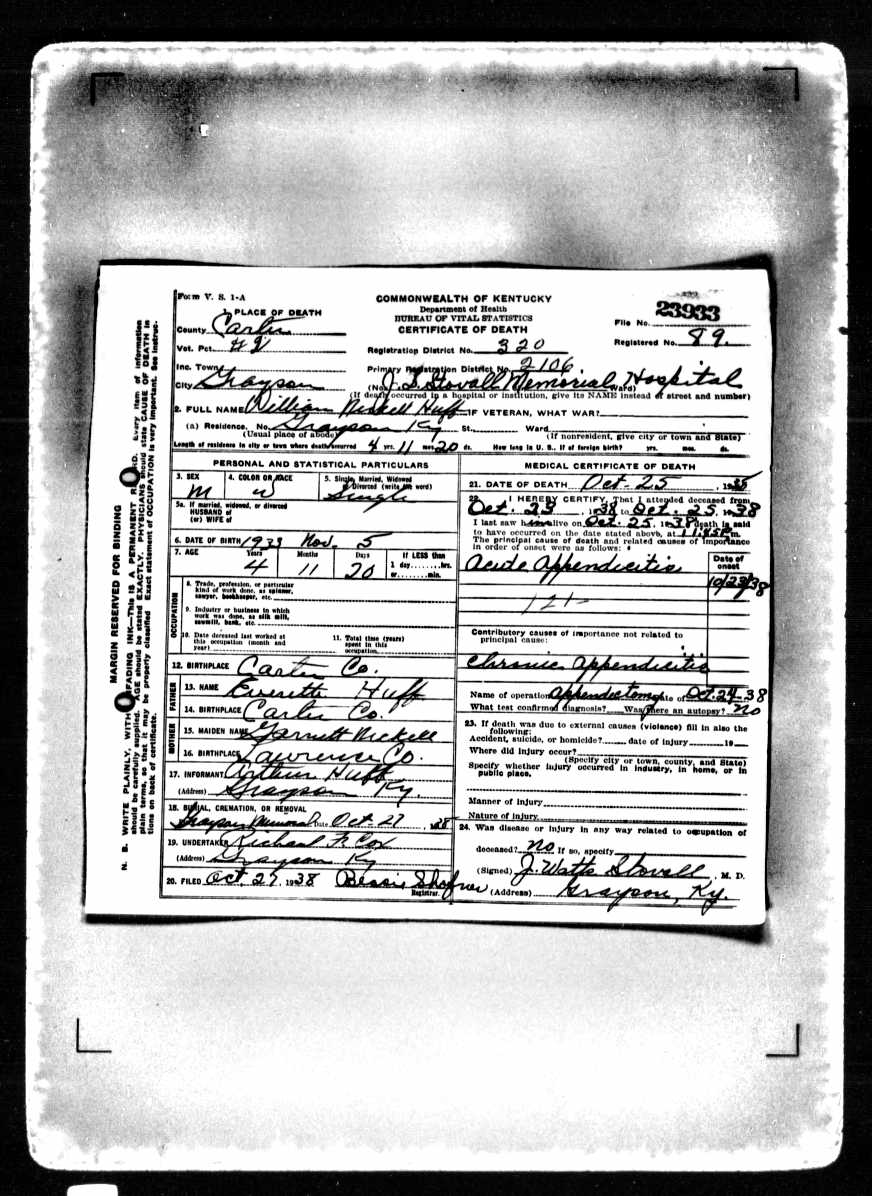 Form V. S. 1-A
COMMONWEALTH OF KENTUCKY
Department of Health
BUREAU OF VITAL STATISTICS
CERTIFICATE OF DEATH
File No. 23933
Registered No. 89.
1. PLACE OF DEATH
County Carter
Vot. Pct.
Inc. Town
City Grayson
Registration District No. 320
Primary Registration District No. 2106
(No. J. S. Stovall Memorial Hospital Ward)
(If death occurred in a hospital or institution, give its NAME instead of street and number)
2. FULL NAME William Nickell Huff IF VETERAN, WHAT WAR?
(a) Residence, No. Grayson Ky St. Ward
(Usual place of abode) (If nonresident, give city or town and State)
Length of residence in city or town where death occurred 4 yrs. 11 mos. 20 ds. How long in U. S., if of foreign birth? yrs. mos. ds.
PERSONAL AND STATISTICAL PARTICULARS
3. SEX M
4. COLOR OR RACE W
5. Single, Married, Widowed or Divorced (write the word) Single
5a. If married, widowed, or divorced
HUSBAND of
(or) WIFE of
6. DATE OF BIRTH 1933 Nov. 5
7. AGE Years 4 Months 11 Days 20 If LESS than 1 day hrs. or min.
OCCUPATION
8. Trade, profession, or particular kind of work done, as spinner, sawyer, bookkeeper, etc.
9. Industry or business in which work was done, as silk mill, sawmill, bank, etc.
10. Date deceased last worked at this occupation (month and year)
11. Total time (years) spent in this occupation
12. BIRTHPLACE Carter Co.
FATHER
13. NAME Everette Huff
14. BIRTHPLACE Carter Co.
MOTHER
15. MAIDEN NAME Garnett Nickell
16. BIRTHPLACE Lawrence Co.
17. INFORMANT Arthur Huff
(Address) Grayson Ky
18. BURIAL, CREMATION, OR REMOVAL
Grayson Memorial Date Oct-27 1938
19. UNDERTAKER Richard F. Cox
(Address) Grayson Ky
20. FILED Oct. 27, 1938 Bessie Shafner
Registrar.
MEDICAL CERTIFICATE OF DEATH
21. DATE OF DEATH Oct-25, 1938
22. I HEREBY CERTIFY, That I attended deceased from
Oct. 23, 1938 to Oct. 25, 1938
I last saw him alive on Oct. 25, 1938 death is said
to have occurred on the date stated above, at 11:45 P.m.
The principal cause of death and related causes of importance
in order of onset were as follows:
Date of onset
Acute Appendicitis 10/23/38
121-
Contributory causes of importance not related to
principal cause:
Chronic appendicitis
Name of operation Appendectomy Date of Oct-24-38
What test confirmed diagnosis? Was there an autopsy? No
23. If death was due to external causes (violence) fill in also the
following:
Accident, suicide, or homicide? date of injury 19
Where did injury occur?
(Specify city or town, county, and State)
Specify whether injury occurred in industry, in home, or in
public place.
Manner of injury
Nature of injury
24. Was disease or injury in any way related to occupation of
deceased? No If so, specify
(Signed) J. Watts Stovall, M. D.
(Address) Grayson, Ky.
MARGIN RESERVED FOR BINDING
N. B. WRITE PLAINLY, WITH UNFADING INK—THIS IS A PERMANENT RECORD. Every item of information
should be carefully supplied. AGE should be stated EXACTLY. PHYSICIANS should state CAUSE OF DEATH in
plain terms, so that it may be properly classified. Exact statement of OCCUPATION is very important. See instruc-
tions on back of certificate.